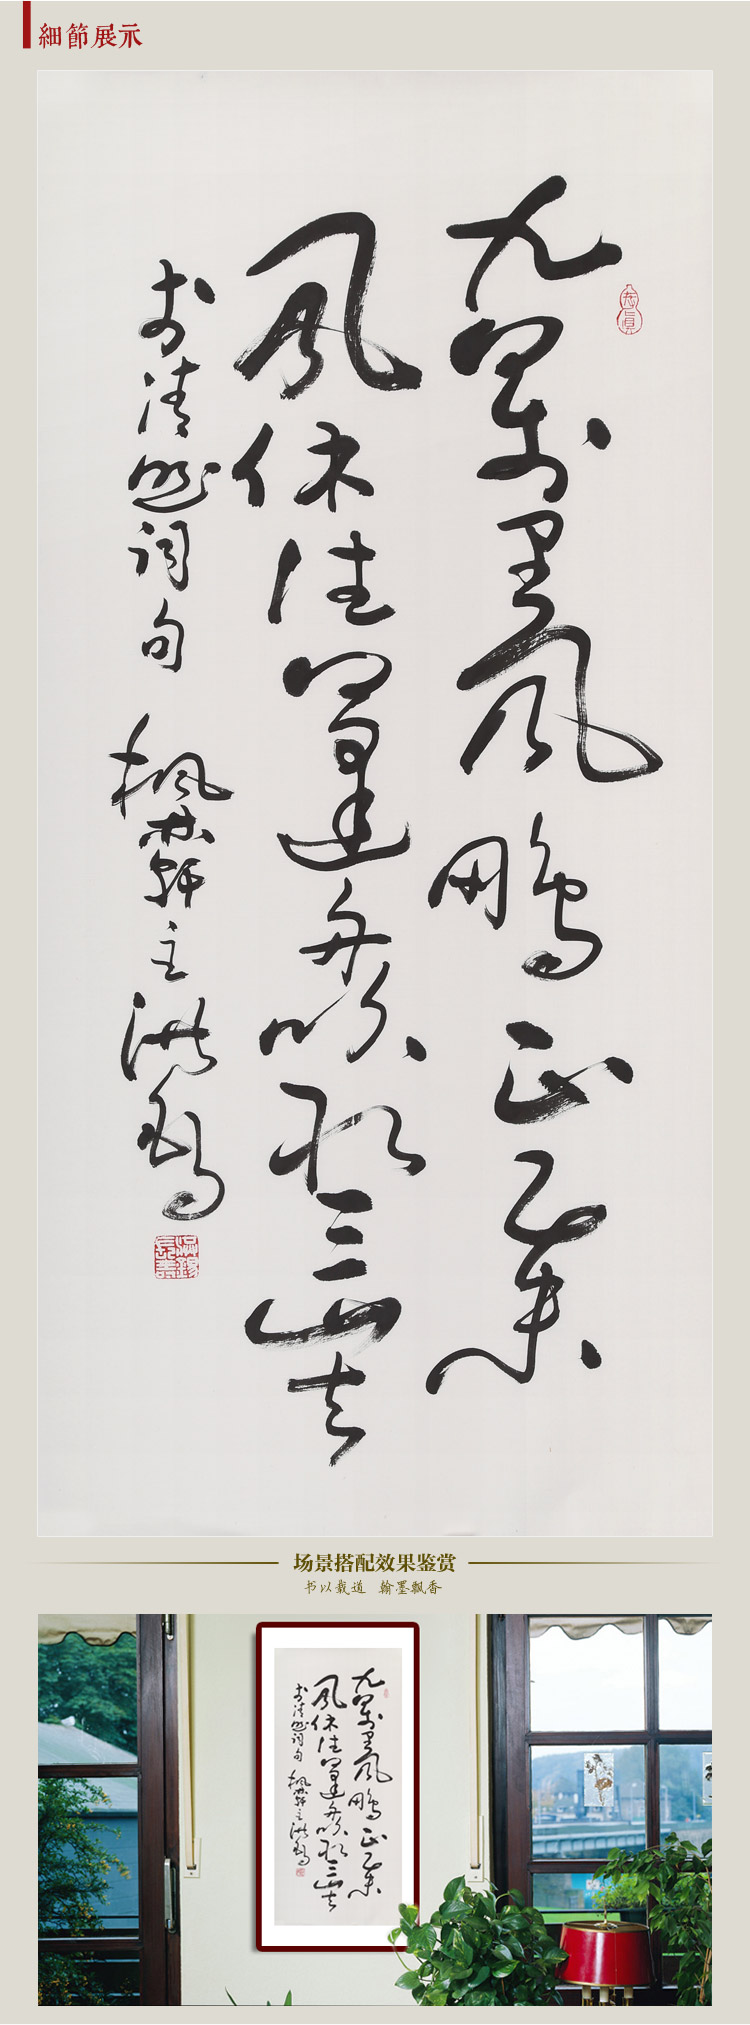 細節展示
九萬里風鵬正舉
風休住蓬舟吹取三山去
李清照詞句 楓林軒主洪
场景搭配效果鉴赏
书以载道 翰墨飘香
九萬里風鵬正舉
風休住蓬舟吹取三山去
李清照詞句 楓林軒主洪